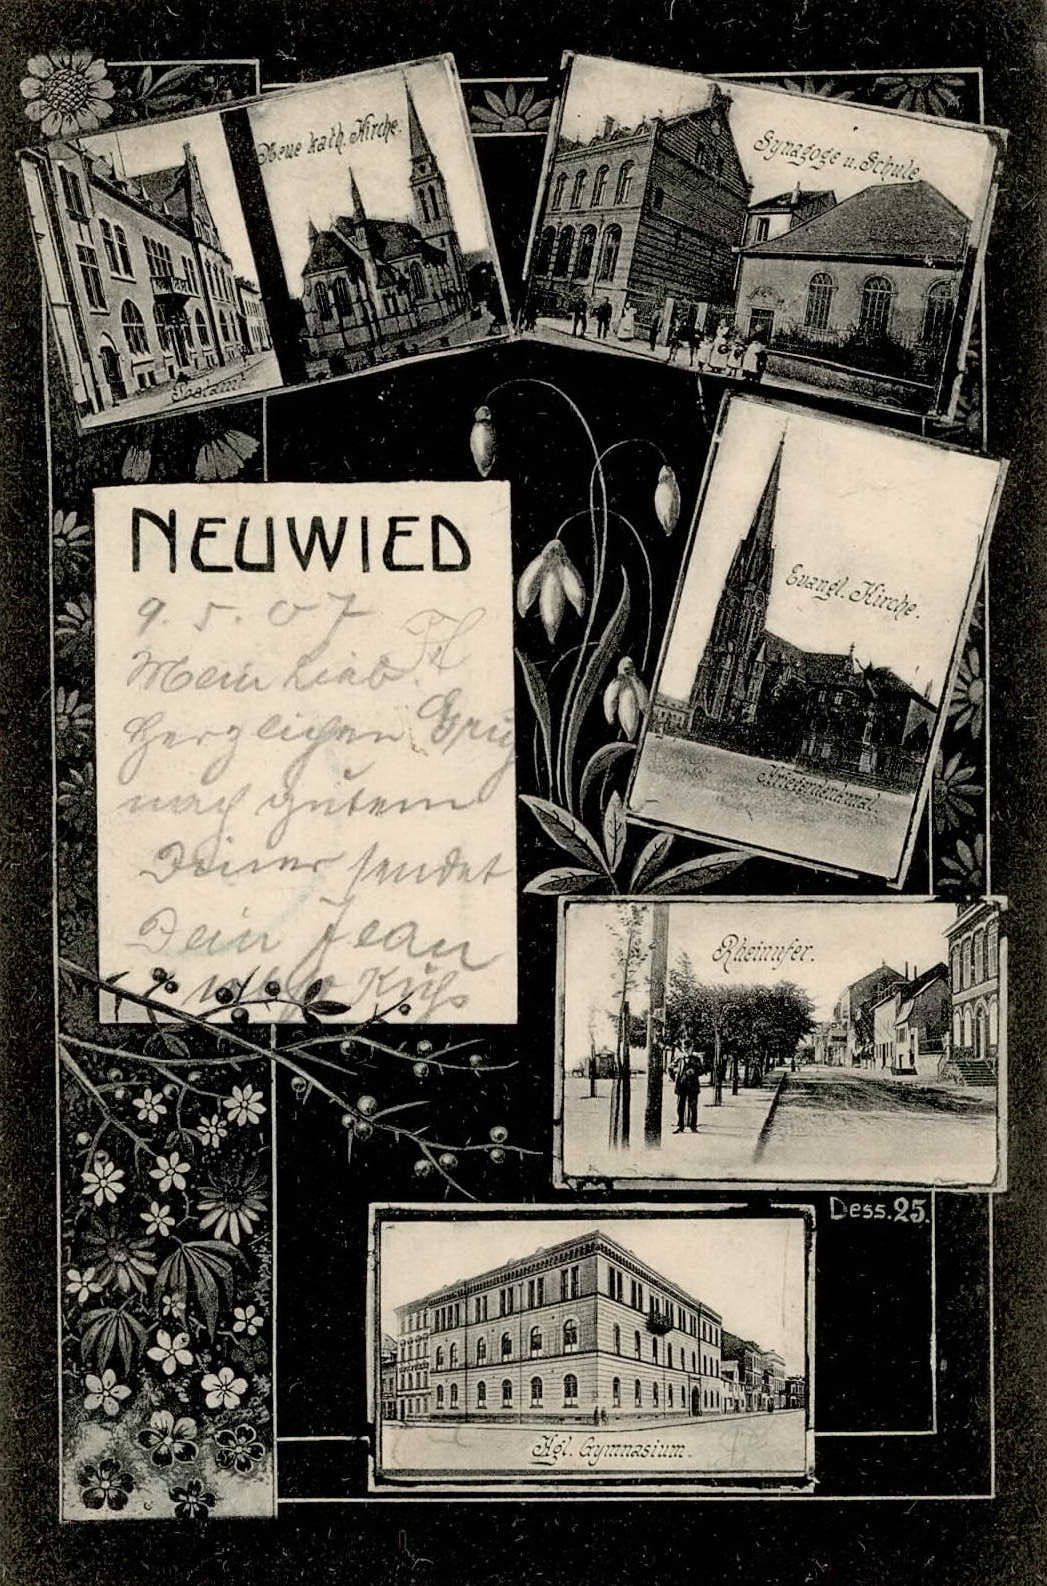 Neue kath. Kirche.
Postamt
Synagoge u. Schule
NEUWIED
9. 5. 07
Mein Lieb.
Herzlichen Gruß
nach gutem
Deiner sendet
Dein Jean
Kuß
Evangl. Kirche.
Kriegerdenkmal.
Rheinufer.
Dess. 25.
Kgl. Gymnasium.